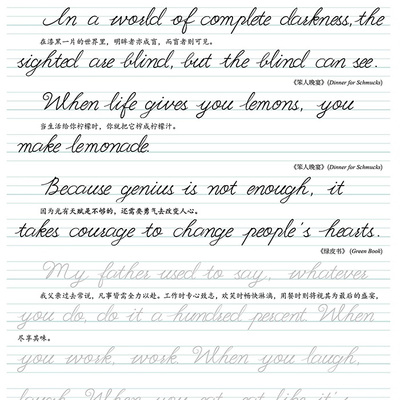 In a world of complete darkness, the
在漆黑一片的世界里，明眸者亦成盲，而盲者则可见。
sighted are blind, but the blind can see.
《笨人晚宴》(Dinner for Schmucks)
When life gives you lemons, you
当生活给你柠檬时，你就把它榨成柠檬汁。
make lemonade.
《笨人晚宴》(Dinner for Schmucks)
Because genius is not enough, it
因为光有天赋是不够的，还需要勇气去改变人心。
takes courage to change people's hearts.
《绿皮书》 (Green Book)
My father used to say, whatever
我父亲过去常说，凡事皆需全力以赴。工作时专心致志，欢笑时畅快淋漓，用餐时则将视其为最后的盛宴，
you do, do it a hundred percent. When
尽享其味。
you work, work. When you laugh,
laugh. When you eat, eat like it's